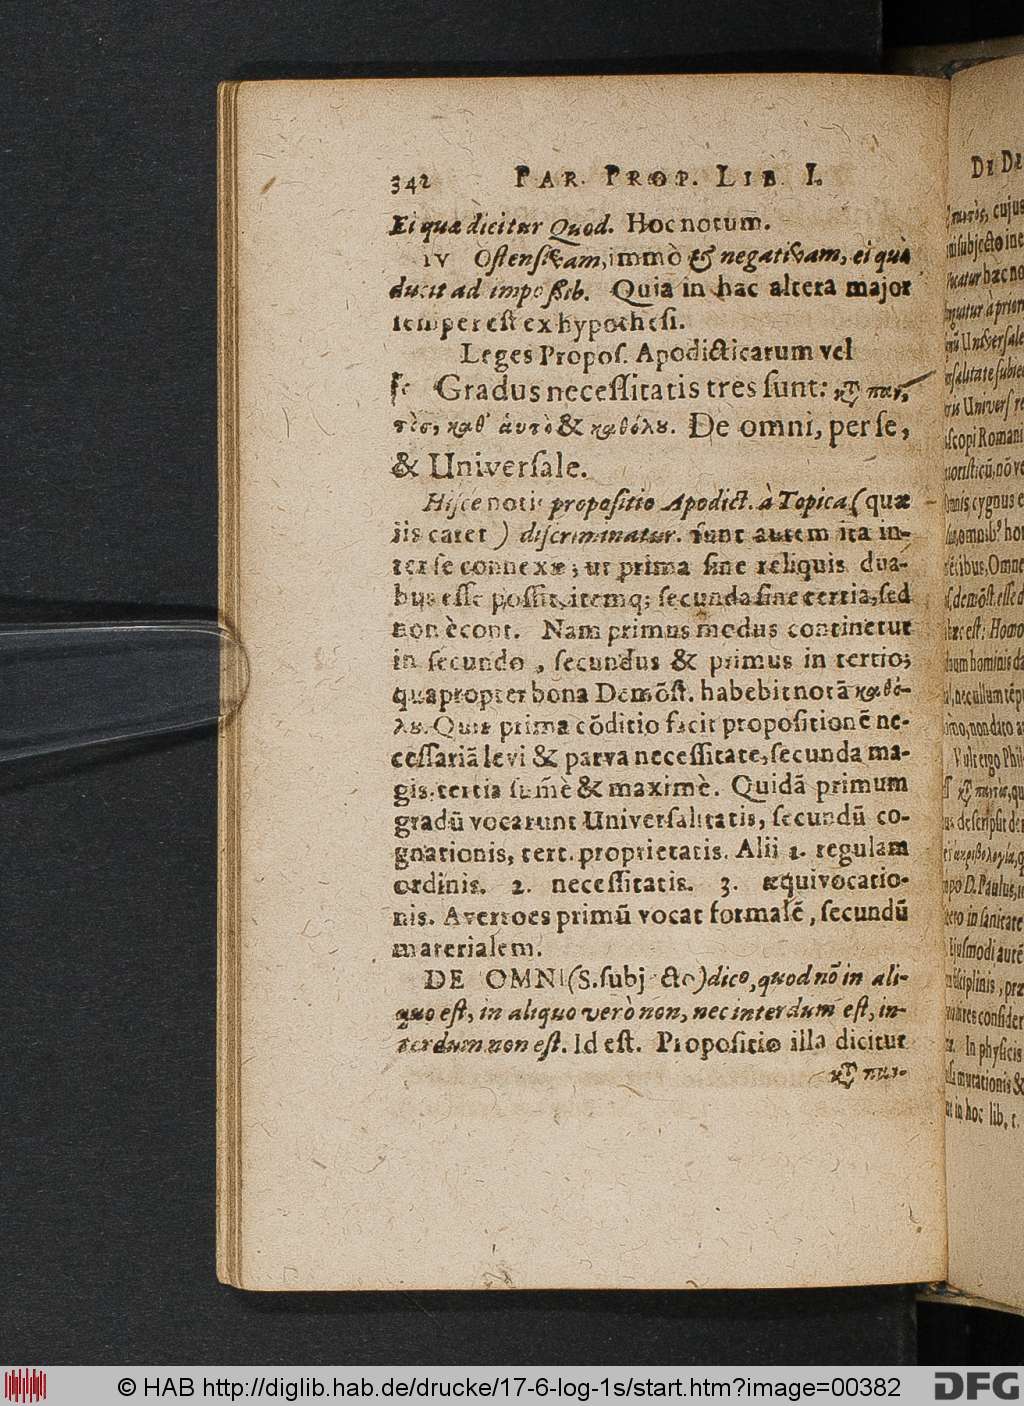 342 PAR. PROP. LIB. I.
Ei quæ dicitur Quod. Hoc notum.
IV Ostensivam, immò & negativam, ei quà
ducit ad impoßib. Quia in hac altera major
semper est ex hypothesi.
Leges Propos. Apodicticarum vel
Gradus necessitatis tres sunt: κτ̀ παν-
τὸς, καθ' ἁυτὸ & καθόλȣ. De omni, per se,
& Universale.
Hisce notis propositio Apodict. à Topica (quæ
iis caret) discriminatur. sunt autem ita in-
ter se connexæ, ut prima sine reliquis dua-
bus esse possit, itemq; secunda sine tertia, sed
non ècont. Nam primus modus continetur
in secundo, secundus & primus in tertio;
quapropter bona Demõst. habebit notã καθό-
λȣ. Quia prima cõditio facit propositionẽ ne-
cessariã levi & parva necessitate, secunda ma-
gis, tertia sum̃è & maximè. Quidã primum
gradũ vocarunt Universalitatis, secundũ co-
gnationis, tert. proprietatis. Alii 1. regulam
ordinis. 2. necessitatis. 3. æquivocatio-
nis. Averroes primũ vocat formalẽ, secundũ
materialem.
DE OMNI (S. subjecto) dico, quod nõ in ali-
quo est, in aliquo verò non, nec interdum est, in-
terdum non est. Id est. Propositio illa dicitur
κτ̀ παν-
DE DE
παντὸς, cujus
subjecto ine
hac no
à priori
Universale
Univers
scopi Romani
cygnus e
Homo
hominis
Vult ergo Phil
D. Paulus,
in sanitate
Ejusmodi autẽ
In physicis
mutationis &
in hoc lib. 1.
© HAB http://diglib.hab.de/drucke/17-6-log-1s/start.htm?image=00382
DFG